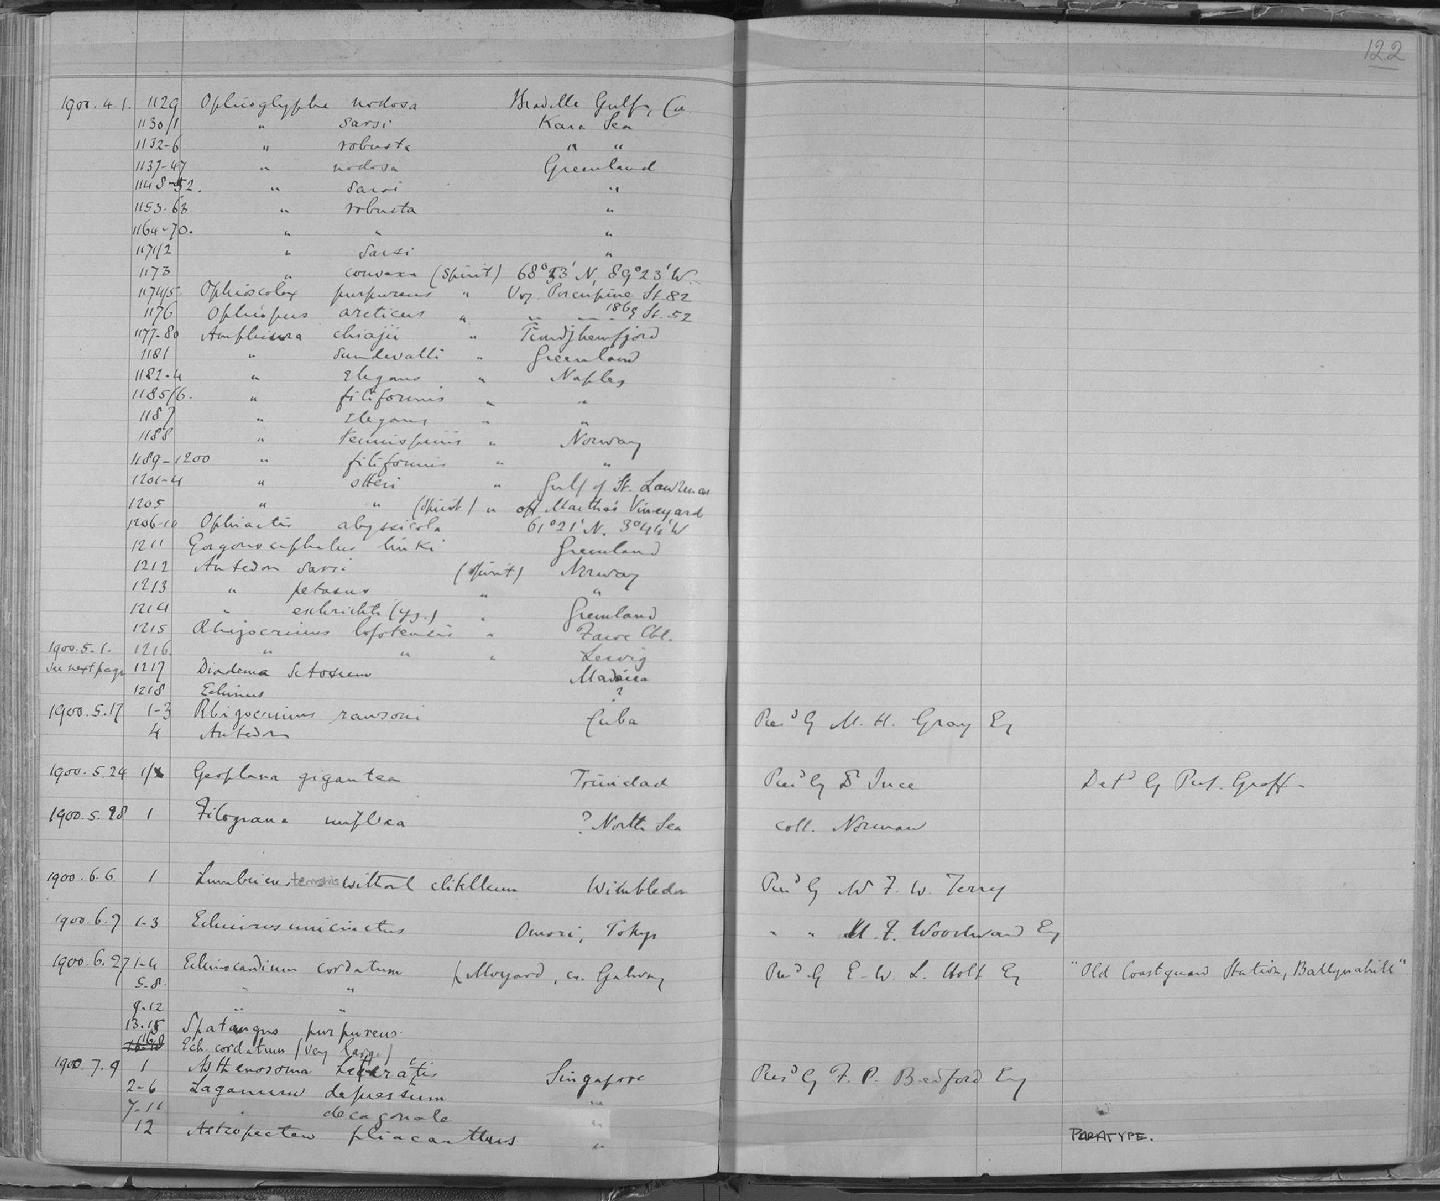 122
1900.4.1. 1129 Ophioglypha nodosa Gulf,
1130/1 " sarsi Kara Sea
1132-6 " robusta " "
1137-47 " nodosa Greenland
1148-52. " sarsi "
1153-63 " robusta "
1164-70. " " "
1171/2 " sarsi "
1173 " convexa (spirit) 68° 89°23'W.
1174/5 Ophioscolex purpureus " Voy. Porcupine St. 82
1176 Ophiopus arcticus " " " 1869 St. 52
1177-80 Amphiura chiajii " Trondjhemfjord
1181 " sundevalli " Greenland
1182-4 " elegans " Naples
1185/6. " filiformis " "
1187 " elegans " "
1188 " tenuispinis " Norway
1189-1200 " filiformis " "
1201-4 " otteri " Gulf of St. Lawrence
1205 " " (spirit) " off Martha's Vineyard
1206-10 Ophiactis abyssicola 61°21'N. 3°44'W
1211 Gorgonocephalus linki Greenland
1212 Antedon sarsi (spirit) Norway
1213 " petasus " "
1214 " eschrichti (yg.) " Greenland
1215 Rhizocrinus lofotensis " Faroe Chl.
1900.5.1. 1216 " " " Lerwig
See next page 1217 Diadema setosum Madeira
1218 Echinus ?
1900.5.17 1-3 Rhizocrinus rawsoni Cuba Pres'd by M. H. Gray Esq
4 Antedon
1900.5.24 Geoplana gigantea Trinidad Pres'd by Dr Ince Det'd by Prof. Graff
1900.5.28 1 Filograna implexa ? North Sea coll. Norman
1900.6.6 1 Lumbricus terrestris without clitellum Wimbledon Pres'd by Mr F. W. Terry
1900.6.7 1-3 Echiurus unicinctus Omori, Tokyo " " M. F. Woodward Esq
1900.6.27 1-4 Echinocardium cordatum (Moyard, co. Galway Pres'd by E. W. L. Holt Esq "Old Coastguard Station, Ballynahill"
5-8 " "
9-12 " "
13-15 Spatangus purpureus.
Ech. cordatum (very large)
1900.7.9 1 Asthenosoma Singapore Pres'd by F. P. Bedford Esq
2-6 Laganum depressum "
7-11 " decagonale "
12 Astropecten " PARATYPE.